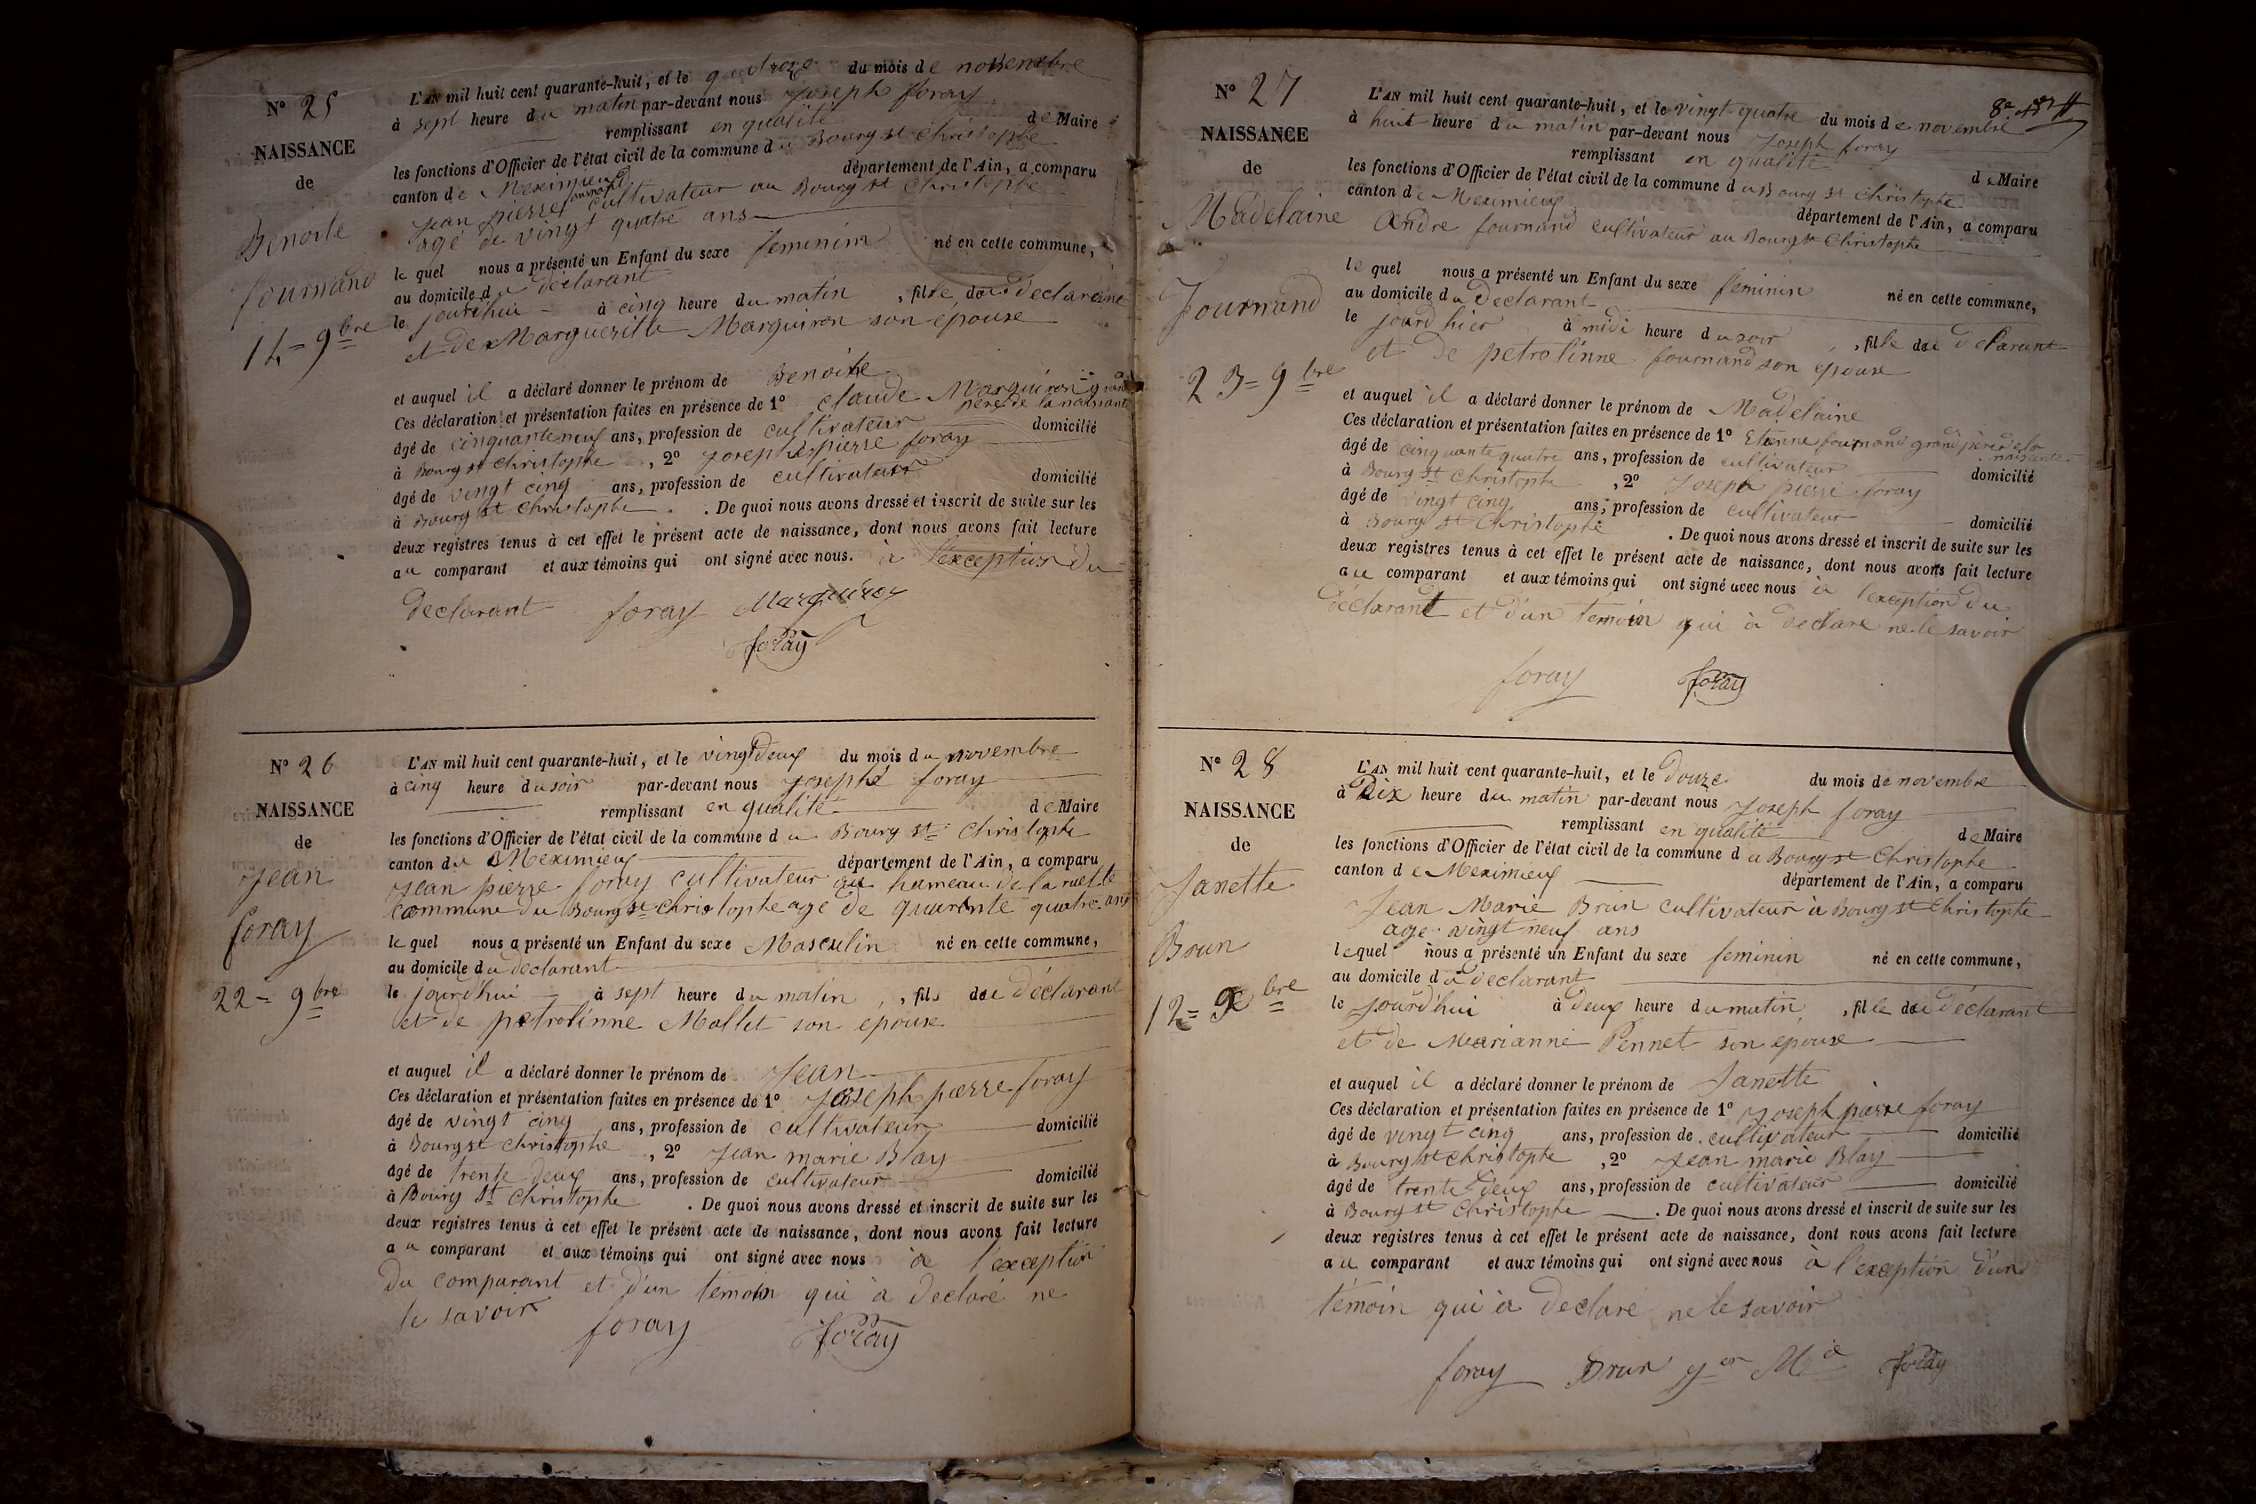 N° 25
NAISSANCE
de
Benoite
fournand
14 = 9bre
L'AN mil huit cent quarante-huit, et le quatorze du mois de novembre
à sept heure du matin par-devant nous Joseph foray
remplissant en qualité de Maire
les fonctions d'Officier de l'état civil de la commune du Bourg st Christophe
canton de Meximieux département de l'Ain, a comparu
Jean pierre fournand cultivateur au Bourg st Christophe
agé de vingt quatre ans
le quel nous a présenté un Enfant du sexe feminim né en cette commune,
au domicile du déclarant
le jourd'hui à cinq heure du matin, fille du declarant
et de Margueritte Marguiron son epouse
et auquel il a déclaré donner le prénom de Benoite
Ces déclaration et présentation faites en présence de 1° claude Marguiron grand
père de la naissante
âgé de cinquante neuf ans, profession de cultivateur domicilié
à Bourg st Christophe, 2° Joseph pierre foray
âgé de vingt cinq ans, profession de cultivateur domicilié
à Bourg st Christophe. De quoi nous avons dressé et inscrit de suite sur les
deux registres tenus à cet effet le présent acte de naissance, dont nous avons fait lecture
au comparant et aux témoins qui ont signé avec nous. à l'exception du
declarant foray Marguiron
foray
N° 26
NAISSANCE
de
Jean
foray
22 = 9bre
L'AN mil huit cent quarante-huit, et le vingt deux du mois du novembre
à cinq heure du soir par-devant nous Joseph foray
remplissant en qualité de Maire
les fonctions d'Officier de l'état civil de la commune du Bourg st Christophe
canton du Meximieux département de l'Ain, a comparu
Jean pierre foray cultivateur au hameau de la ruette
commune du Bourg st christophe age de quarente quatre ans
le quel nous a présenté un Enfant du sexe Masculin né en cette commune,
au domicile du declarant
le jourd'hui à sept heure du matin, fils du déclarant
et de petrolinne Mollet son epouse
et auquel il a déclaré donner le prénom de Jean
Ces déclaration et présentation faites en présence de 1° Joseph pierre foray
âgé de vingt cinq ans, profession de cultivateur domicilié
à Bourg st christophe, 2° Jean marie Blay
âgé de trente deux ans, profession de cultivateur domicilié
à Bourg st Christophe. De quoi nous avons dressé et inscrit de suite sur les
deux registres tenus à cet effet le présent acte de naissance, dont nous avons fait lecture
au comparant et aux témoins qui ont signé avec nous à l'exception
du comparant et d'un témoin qui à declaré ne
le savoir
foray foray
N° 27
NAISSANCE
de
Madelaine
fournand
23 = 9bre
L'AN mil huit cent quarante-huit, et le vingt quatre du mois de novembre
à huit heure du matin par-devant nous Joseph foray
remplissant en qualité de Maire
les fonctions d'Officier de l'état civil de la commune du Bourg st Christophe
canton de Meximieux département de l'Ain, a comparu
andre fournand cultivateur au Bourg st Christophe
le quel nous a présenté un Enfant du sexe feminin né en cette commune,
au domicile du Declarant
le jourd hier à midi heure du soir, fille du declarant
et de petrolinne fournand son epouse
et auquel il a déclaré donner le prénom de Madelaine
Ces déclaration et présentation faites en présence de 1° Etienne fournand grand père de la
naissante
âgé de cinquante quatre ans, profession de cultivateur domicilié
à Bourg st Christophe, 2° Joseph pierre foray
âgé de vingt cinq ans, profession de cultivateur domicilié
à Bourg st Christophe. De quoi nous avons dressé et inscrit de suite sur les
deux registres tenus à cet effet le présent acte de naissance, dont nous avons fait lecture
au comparant et aux témoins qui ont signé avec nous à l'exception du
déclarant et d'un temoin qui à declare ne le savoir
foray foray
N° 28
NAISSANCE
de
Janette
Brun
12 = 9bre
L'AN mil huit cent quarante-huit, et le douze du mois de novembre
à Dix heure du matin par-devant nous Joseph foray
remplissant en qualité de Maire
les fonctions d'Officier de l'état civil de la commune du Bourg st Christophe
canton de Meximieux département de l'Ain, a comparu
Jean Marie Brun cultivateur à Bourg st Christophe
age vingt neuf ans
lequel nous a présenté un Enfant du sexe feminin né en cette commune,
au domicile du declarant
le jourd'hui à deux heure du matin, fille du déclarant
et de Marianne Pennet son epouse
et auquel il a déclaré donner le prénom de Janette
Ces déclaration et présentation faites en présence de 1° Joseph pierre foray
âgé de vingt cinq ans, profession de cultivateur domicilié
à Bourg st christophe, 2° Jean marie Blay
âgé de trente deux ans, profession de cultivateur domicilié
à Bourg st Christophe. De quoi nous avons dressé et inscrit de suite sur les
deux registres tenus à cet effet le présent acte de naissance, dont nous avons fait lecture
au comparant et aux témoins qui ont signé avec nous à l'exception d'un
témoin qui à declare ne le savoir
foray Brun foray